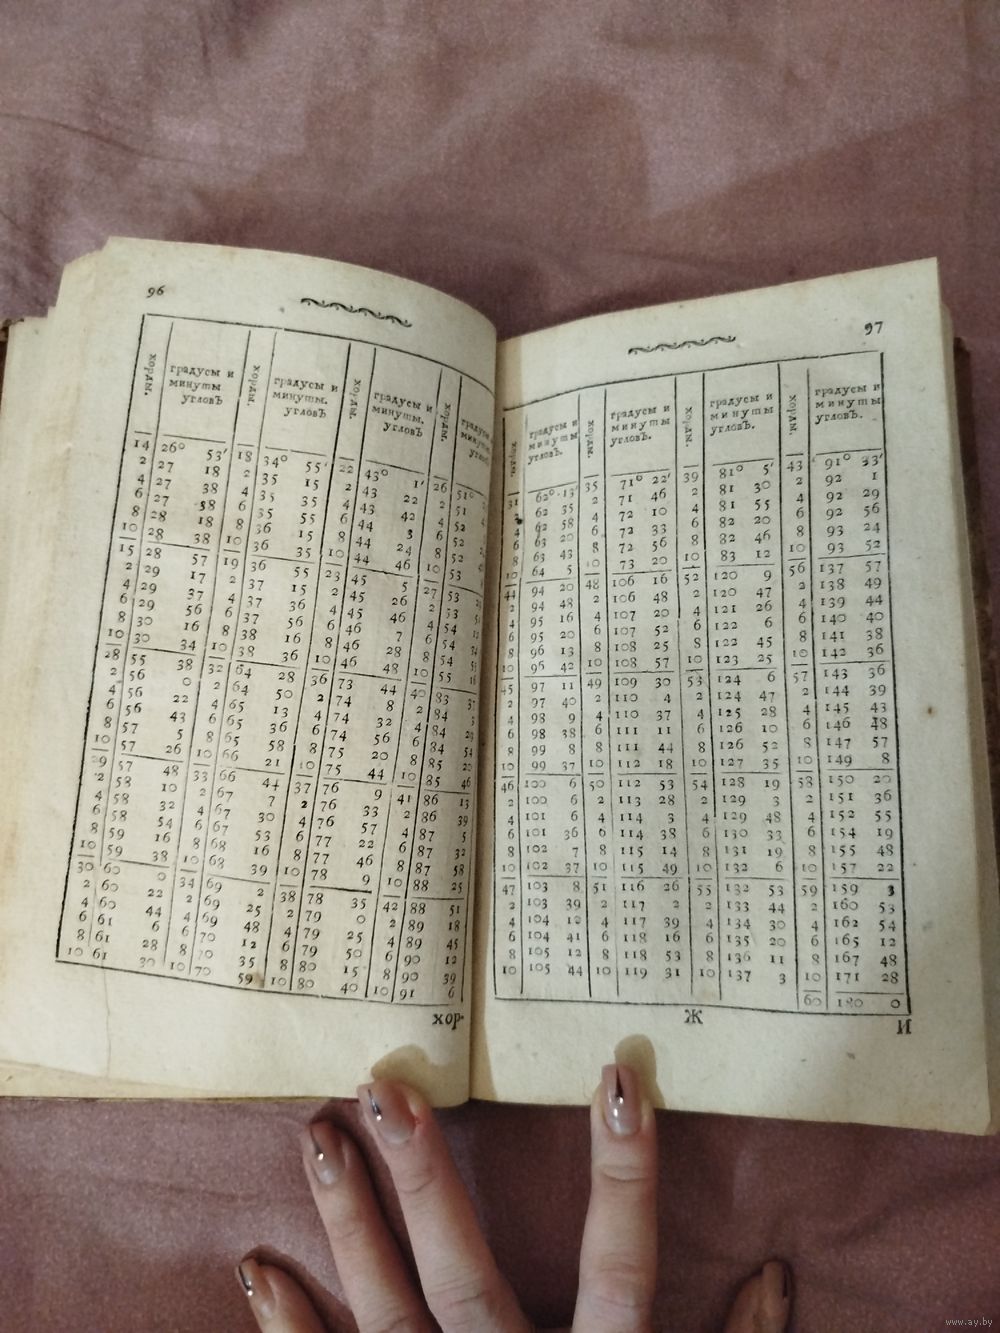 96
хорды. градусы и минуты угловЪ хорды. градусы и минуты. угловЪ хорды. градусы и минуты. угловЪ хорды. градусы минуты. угловЪ
14 26° 53′ 18 34° 55′ 22 43° 1′ 26 51°
2 27 18 2 35 15 2 43 22 2 51
4 27 38 4 35 35 4 43 42 4 52
6 27 58 6 35 55 6 44 3 6 52
8 28 18 8 36 15 8 44 24 8 52
10 28 38 10 36 35 10 44 46 10 53
15 28 57 19 36 55 23 45 5 27 53
2 29 17 2 37 15 2 45 26 2 53
4 29 37 4 37 36 4 45 46 4 54
6 29 56 6 37 56 6 46 7 6 54
8 30 16 8 38 16 8 46 28 8 54
10 30 34 10 38 36 10 46 48 10 55
28 55 38 32 64 28 36 73 44 40 83 37
2 56 0 2 64 50 2 74 8 2 84 3
4 56 22 4 65 13 4 74 32 4 84 29
6 56 43 6 65 36 6 74 56 6 84 54
8 57 5 8 65 58 8 75 20 8 85 20
10 57 26 10 66 21 10 75 44 10 85 46
29 57 48 33 66 44 37 76 9 41 86 13
2 58 10 2 67 7 2 76 33 2 86 39
4 58 32 4 67 30 4 76 57 4 87 5
6 58 54 6 67 53 6 77 22 6 87 32
8 59 16 8 68 16 8 77 46 8 87 58
10 59 38 10 68 39 10 78 9 10 88 25
30 60 0 34 69 2 38 78 35 42 88 51
2 60 22 2 69 25 2 79 0 2 89 18
4 60 44 4 69 48 4 79 25 4 89 45
6 61 6 6 70 12 6 79 50 6 90 12
8 61 28 8 70 35 8 80 15 8 90 39
10 61 30 10 70 59 10 80 40 10 91 6
хор-
97
хорды. градусы и минуты угловЪ. хорды. градусы и минуты угловЪ. хорды. градусы и минуты угловЪ. хорды. градусы и минуты угловЪ.
31 62° 13′ 35 71° 22′ 39 81° 5′ 43 91° 33′
2 62 35 2 71 46 2 81 30 2 92 1
4 62 58 4 72 10 4 81 55 4 92 29
6 63 20 6 72 33 6 82 20 6 92 56
8 63 43 8 72 56 8 82 46 8 93 24
10 64 5 10 73 20 10 83 12 10 93 52
44 94 20 48 106 16 52 120 9 56 137 57
2 94 48 2 106 48 2 120 47 2 138 49
4 95 16 4 107 20 4 121 26 4 139 44
6 95 20 6 107 52 6 122 6 6 140 40
8 96 13 8 108 25 8 122 45 8 141 38
10 96 42 10 108 57 10 123 25 10 142 36
45 97 11 49 109 30 53 124 6 57 143 36
2 97 40 2 110 4 2 124 47 2 144 39
4 98 9 4 110 37 4 125 28 4 145 43
6 98 38 6 111 11 6 126 10 6 146 48
8 99 8 8 111 44 8 126 52 8 147 57
10 99 37 10 112 18 10 127 35 10 149 8
46 100 6 50 112 53 54 128 19 58 150 20
2 100 6 2 113 28 2 129 3 2 151 36
4 101 6 4 114 3 4 129 48 4 152 55
6 101 36 6 114 38 6 130 33 6 154 19
8 102 7 8 115 14 8 131 19 8 155 48
10 102 37 10 115 49 10 132 6 10 157 22
47 103 8 51 116 26 55 132 53 59 159 3
2 103 39 2 117 2 2 133 44 2 160 53
4 104 10 4 117 39 4 134 30 4 162 54
6 104 41 6 118 16 6 135 20 6 165 12
8 105 12 8 118 53 8 136 11 8 167 48
10 105 44 10 119 31 10 137 3 10 171 28
60 180 0
Ж
И
www.ay.by